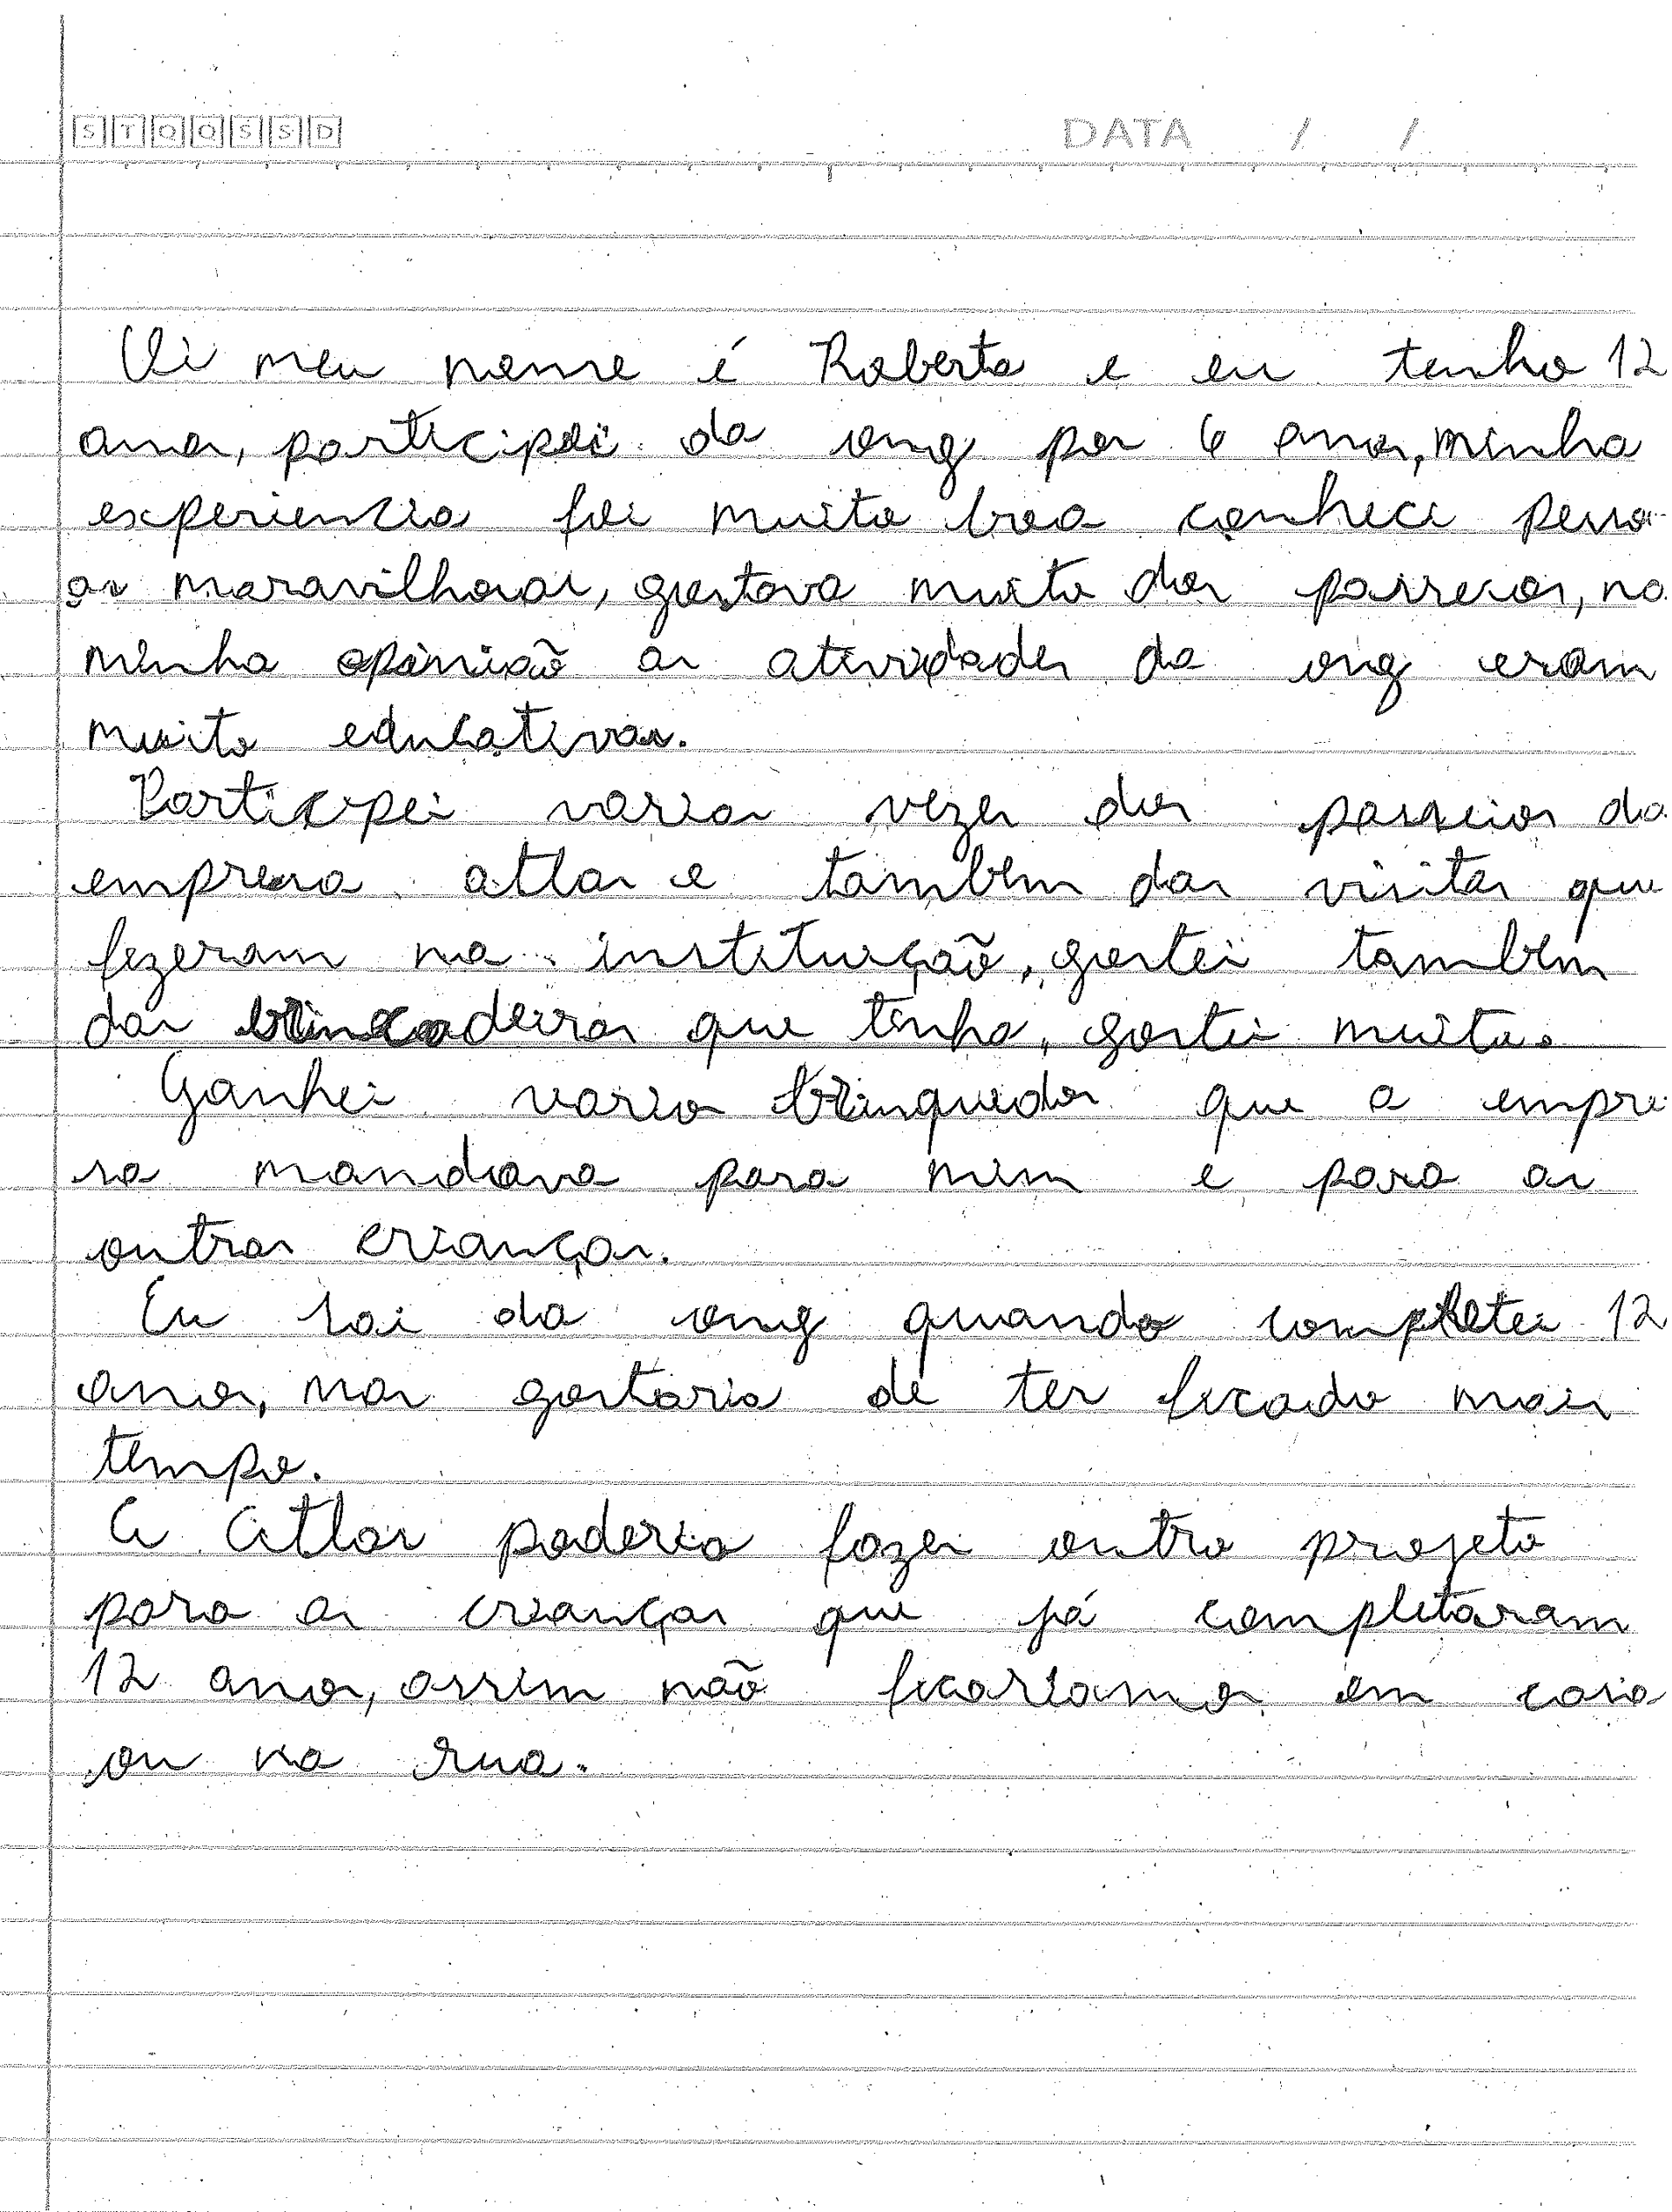 S T Q Q S S D DATA / /
Oi meu nome é Roberta e eu tenho 12
anos, participei da ong por 6 anos, minha
experiencia foi muito boa conheci pesso-
as maravilhosas, gostava muito dos passeios, na
minha opinião as atividades da ong eram
muito educativas.
Participei varias vezes dos passeios da
empresa atlas e tambem das visitas que
fizeram na instituição, gostei tambem
das brincadeiras que tinha, gostei muito.
Ganhei varios brinquedos que a empre-
sa mandava para mim e para as
outras crianças.
Eu sai da ong quando completei 12
anos, mas gostaria de ter ficado mais
tempo.
A Atlas poderia fazer outro projeto
para as crianças que já completaram
12 anos, assim não ficariamos em casa
ou na rua.